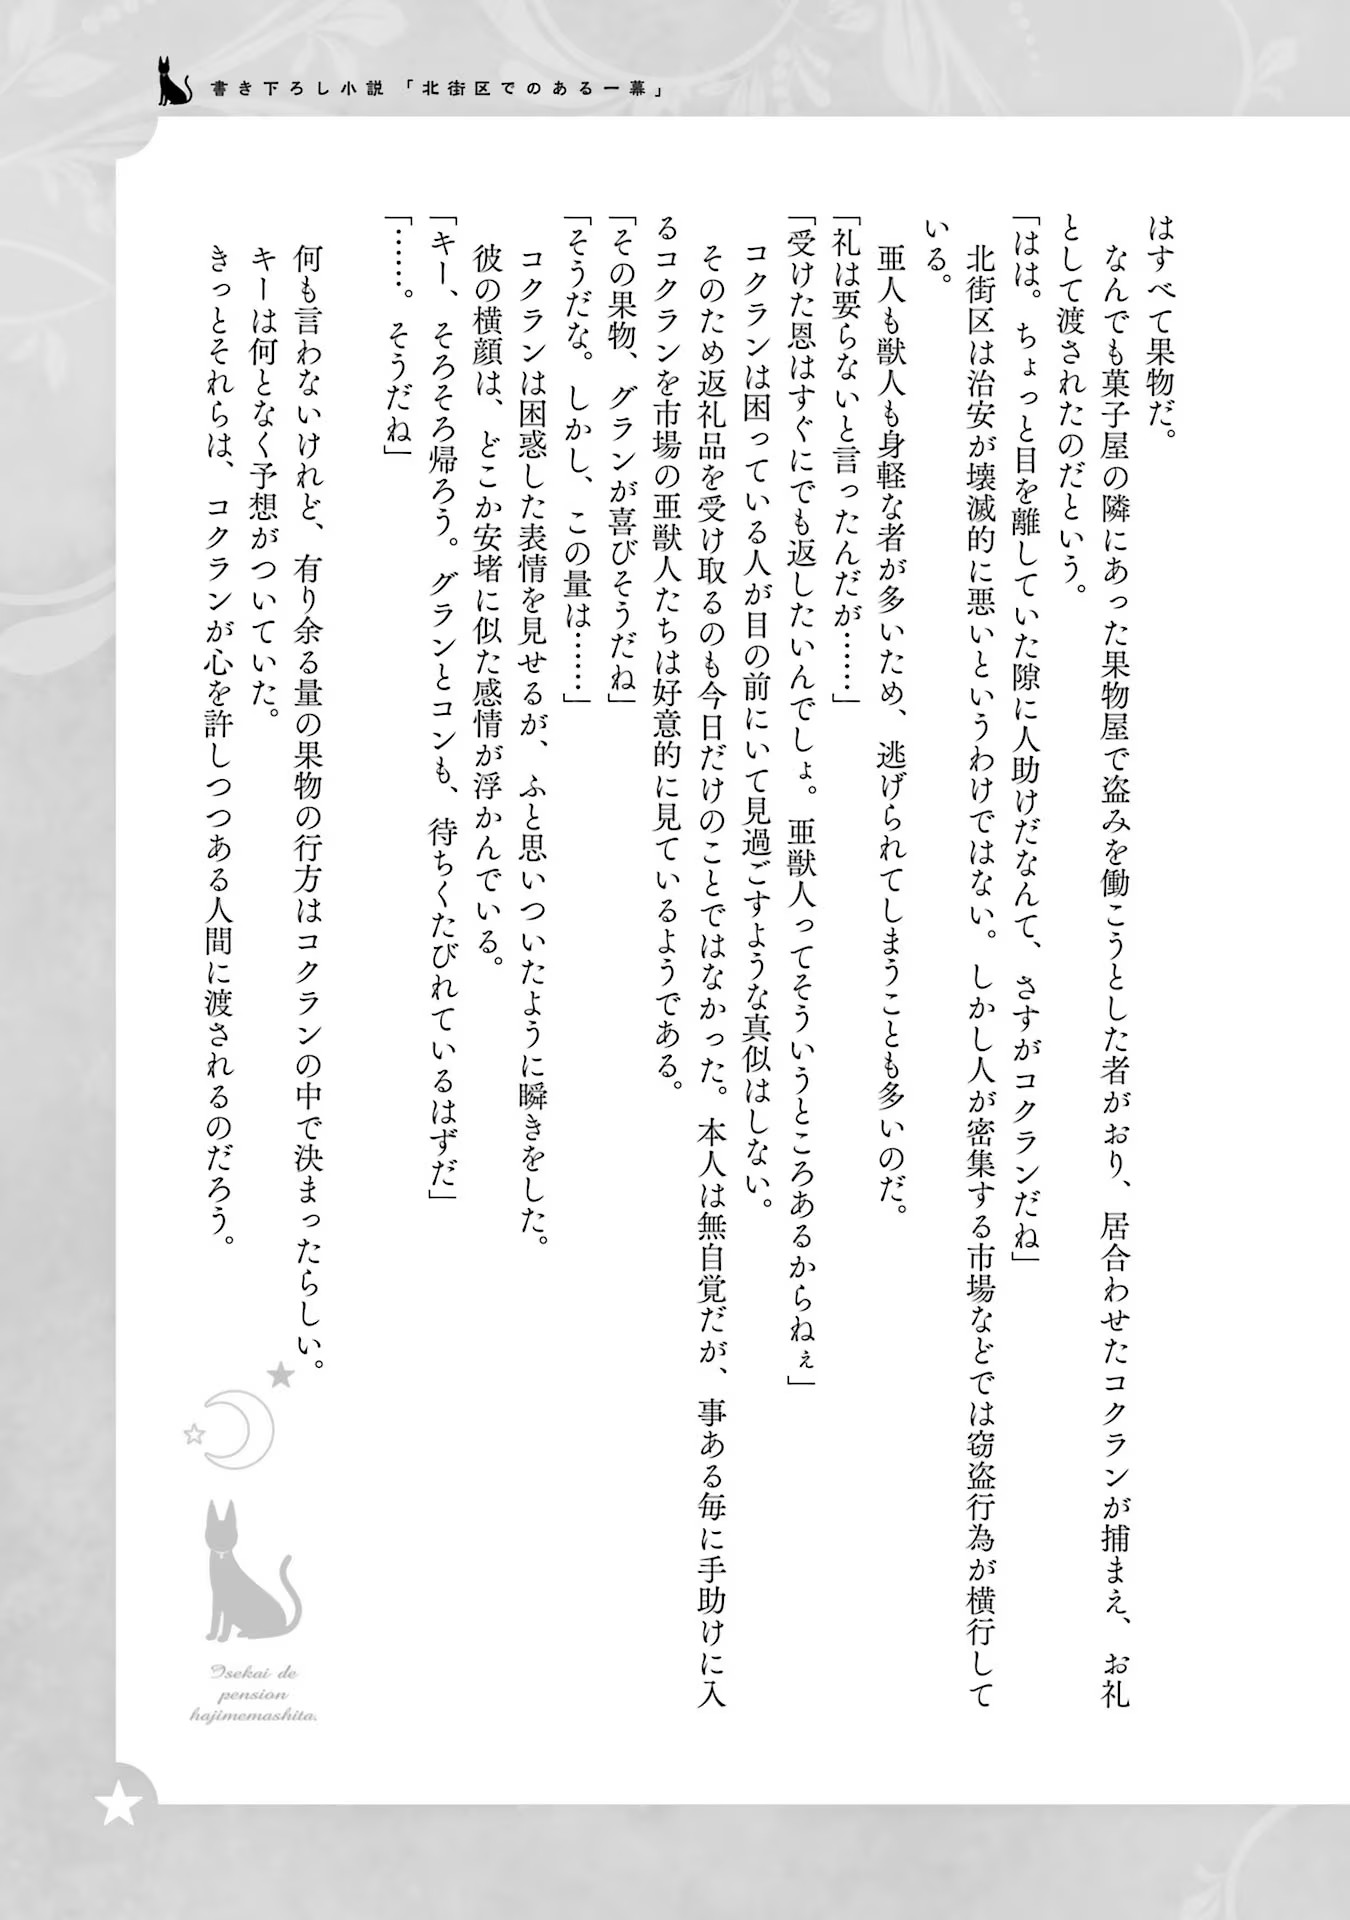 書き下ろし小説「北街区でのある一幕」
はすべて果物だ。
なんでも菓子屋の隣にあった果物屋で盗みを働こうとした者がおり、居合わせたコクランが捕まえ、お礼
として渡されたのだという。
「はは。ちょっと目を離していた隙に人助けだなんて、さすがコクランだね」
北街区は治安が壊滅的に悪いというわけではない。しかし人が密集する市場などでは窃盗行為が横行して
いる。
亜人も獣人も身軽な者が多いため、逃げられてしまうことも多いのだ。
「礼は要らないと言ったんだが……」
「受けた恩はすぐにでも返したいんでしょ。亜獣人ってそういうところあるからねぇ」
コクランは困っている人が目の前にいて見過ごすような真似はしない。
そのため返礼品を受け取るのも今日だけのことではなかった。本人は無自覚だが、事ある毎に手助けに入
るコクランを市場の亜獣人たちは好意的に見ているようである。
「その果物、グランが喜びそうだね」
「そうだな。しかし、この量は……」
コクランは困惑した表情を見せるが、ふと思いついたように瞬きをした。
彼の横顔は、どこか安堵に似た感情が浮かんでいる。
「キー、そろそろ帰ろう。グランとコンも、待ちくたびれているはずだ」
「……。そうだね」
何も言わないけれど、有り余る量の果物の行方はコクランの中で決まったらしい。
キーは何となく予想がついていた。
きっとそれらは、コクランが心を許しつつある人間に渡されるのだろう。
Isekai de
pension
hajimemashita.